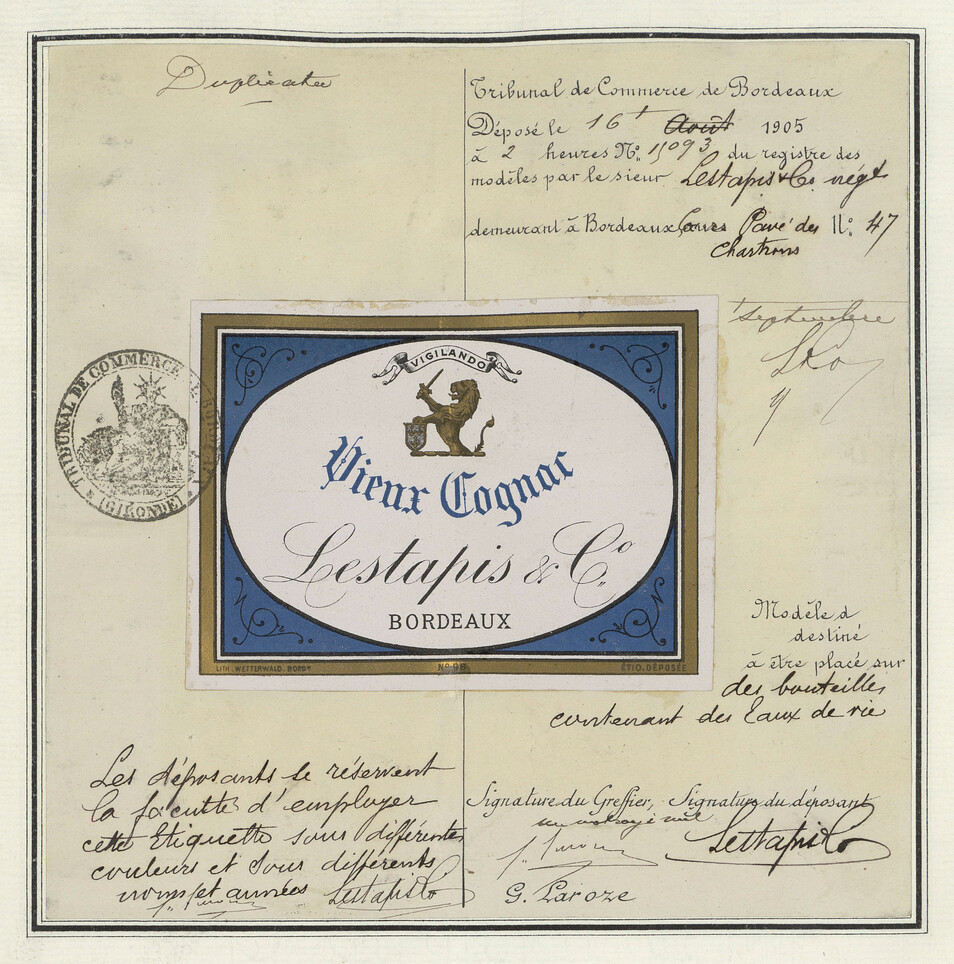 Duplicata
Tribunal de Commerce de Bordeaux
Déposé le 16 Août 1905
à 2 heures No. 11093 du registre des
modèles par le sieur Lestapis & Co négt
demeurant à Bordeaux Cours Pavé des No. 47
Chartrons
septembre
L&Co
TRIBUNAL DE COMMERCE DE BORDEAUX
(GIRONDE)
VIGILANDO
Vieux Cognac
Lestapis & Co.
BORDEAUX
LITH. WETTERWALD. BORDx
No 98
ETIQ. DÉPOSÉE
Modèle d
destiné
à être placé sur
des bouteilles
contenant des Eaux de vie
Les déposants se réservent
la faculté d'employer
cette Etiquette sous différentes
couleurs et sous différents
noms et années Lestapis&Co
Signature du Greffier, Signature du déposant
Lestapis&Co
G. Laroze